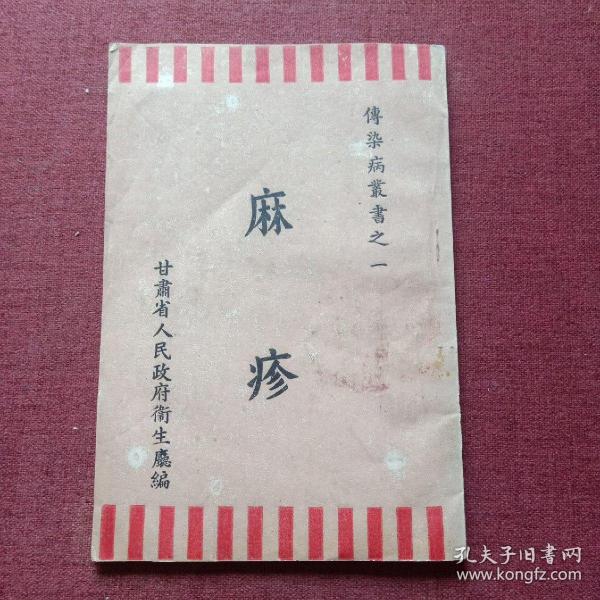 傳染病叢書之一
麻疹
甘肅省人民政府衛生廳編
孔夫子旧书网
www.kongfz.com